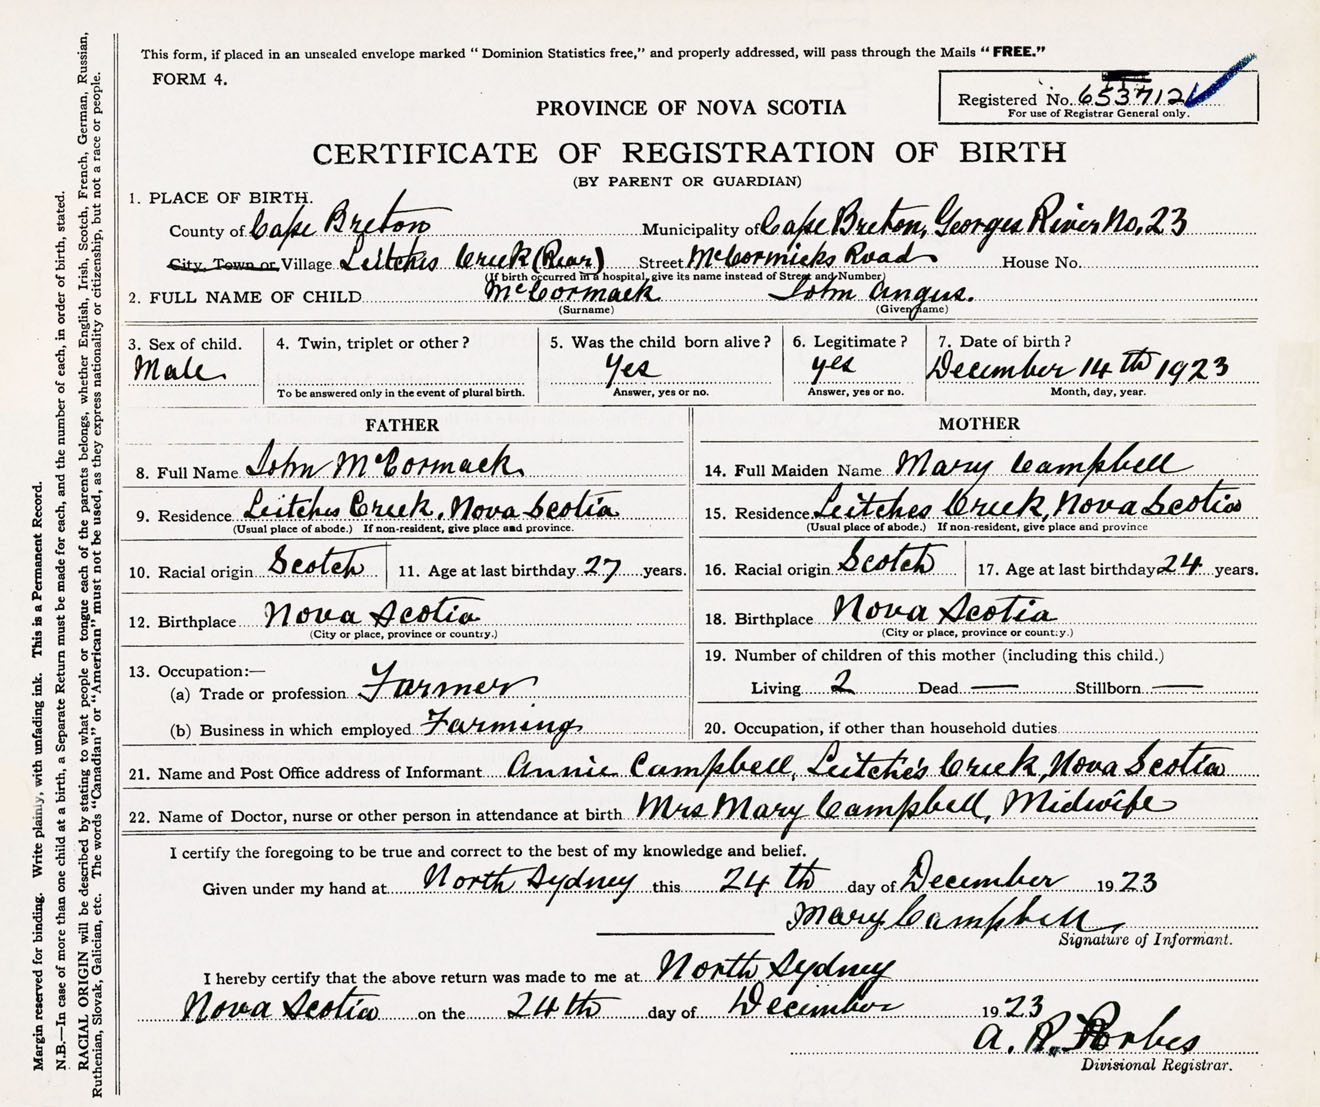 This form, if placed in an unsealed envelope marked "Dominion Statistics free," and properly addressed, will pass through the Mails "FREE."
FORM 4.
Registered No. 653712
For use of Registrar General only.
PROVINCE OF NOVA SCOTIA
CERTIFICATE OF REGISTRATION OF BIRTH
(BY PARENT OR GUARDIAN)
1. PLACE OF BIRTH.
County of Cape Breton Municipality of Cape Breton, Georges River No. 23
City, Town or Village Leitches Creek (Rear) Street McCormicks Road House No.
(If birth occurred in a hospital, give its name instead of Street and Number)
2. FULL NAME OF CHILD McCormack John Angus.
(Surname) (Given name)
3. Sex of child. 4. Twin, triplet or other? 5. Was the child born alive? 6. Legitimate? 7. Date of birth?
Male Yes yes December 14th 1923
To be answered only in the event of plural birth. Answer, yes or no. Answer, yes or no. Month, day, year.
FATHER MOTHER
8. Full Name John McCormack 14. Full Maiden Name Mary Campbell
9. Residence Leitches Creek, Nova Scotia 15. Residence Leitches Creek, Nova Scotia
(Usual place of abode.) If non-resident, give place and province. (Usual place of abode.) If non-resident, give place and province
10. Racial origin Scotch 11. Age at last birthday 27 years. 16. Racial origin Scotch 17. Age at last birthday 24 years.
12. Birthplace Nova Scotia 18. Birthplace Nova Scotia
(City or place, province or country.) (City or place, province or country.)
13. Occupation:— 19. Number of children of this mother (including this child.)
(a) Trade or profession Farmer Living 2 Dead — Stillborn —
(b) Business in which employed Farming 20. Occupation, if other than household duties
21. Name and Post Office address of Informant Annie Campbell, Leitche's Creek, Nova Scotia
22. Name of Doctor, nurse or other person in attendance at birth Mrs Mary Campbell, Midwife
I certify the foregoing to be true and correct to the best of my knowledge and belief.
Given under my hand at North Sydney this 24th day of December 1923
Mary Campbell
Signature of Informant.
I hereby certify that the above return was made to me at North Sydney
Nova Scotia on the 24th day of December 1923
A. R. Forbes
Divisional Registrar.
Margin reserved for binding. Write plainly, with unfading ink. This is a Permanent Record.
N.B.—In case of more than one child at a birth, a Separate Return must be made for each, and the number of each, in order of birth, stated.
RACIAL ORIGIN will be described by stating to what people or tongue each of the parents belongs, whether English, Irish, Scotch, French, German, Russian,
Ruthenian, Slovak, Galician, etc. The words "Canadian" or "American" must not be used, as they express nationality or citizenship, but not a race or people.